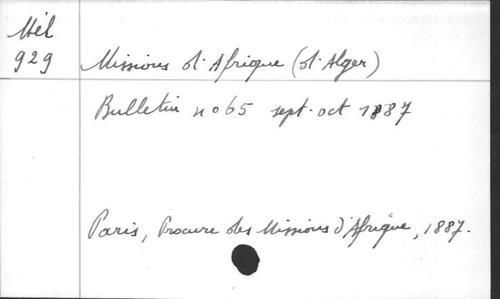 Mél
929
Missions d'Afrique (d'Alger)
Bulletin no 65 sept-oct 1887
Paris, Procure des Missions d'Afrique, 1887.